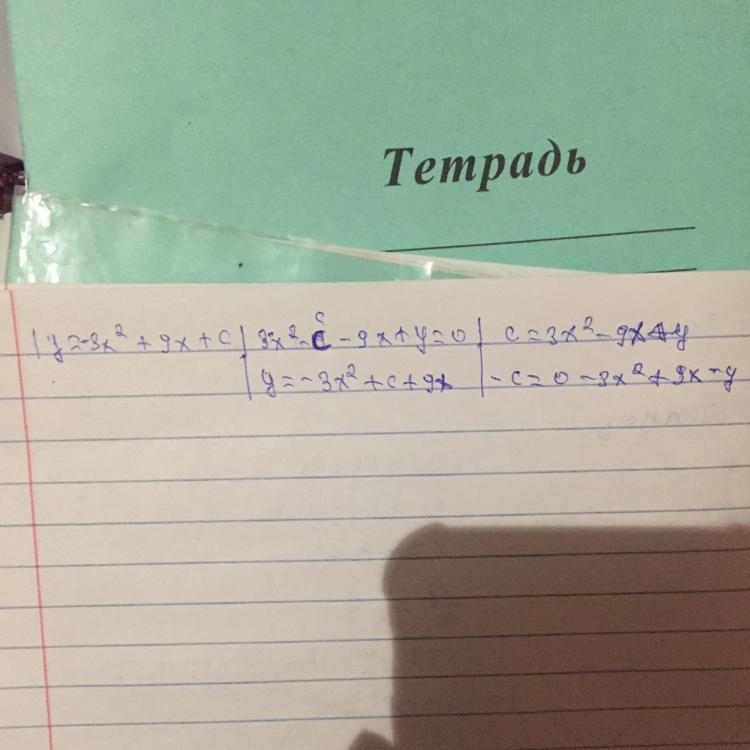 Тетрадь
| y=-3x² + 9x + c | 3x² - c - 9x + y = 0 | c = 3x² - 9x + y
| y = -3x² + c + 9x | - c = 0 - 3x² + 9x - y